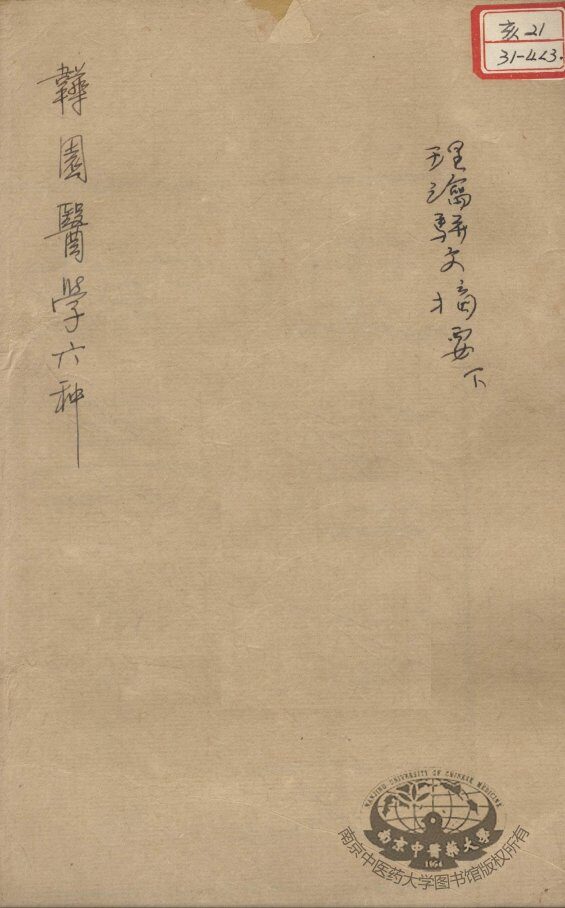 亥21
31-443.
韡園醫学六种
理瀹駢文摘要下
NANJING UNIVERSITY OF CHINESE MEDICINE
南京中醫藥大學
1954
南京中医药大学图书馆版权所有